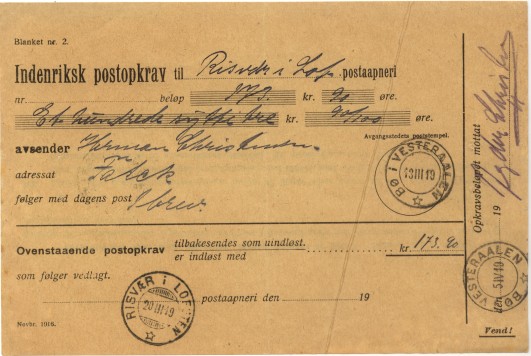 Blanket nr. 2.
Indenriksk postopkrav til Risvær i Lof. postaapneri
nr. beløp 173. kr. 90 øre.
Et hundrede sytti tre kr. 90/100 øre.
Avgangsstedets poststempel.
avsender Herman Christensen
adressat Falck
følger med dagens post 1 brev.
BØ I VESTERAALEN
13 III 19
Ovenstaaende postopkrav tilbakesendes som uindløst.
er indløst med kr. 173.90
som følger vedlagt.
postaapneri den 19
RISVÆR I LOFOTEN
20 III 19
Novbr. 1918.
Opkrævsbeløpet mottat
den 19
BØ I VESTERAALEN
5 IV 19
Vend!